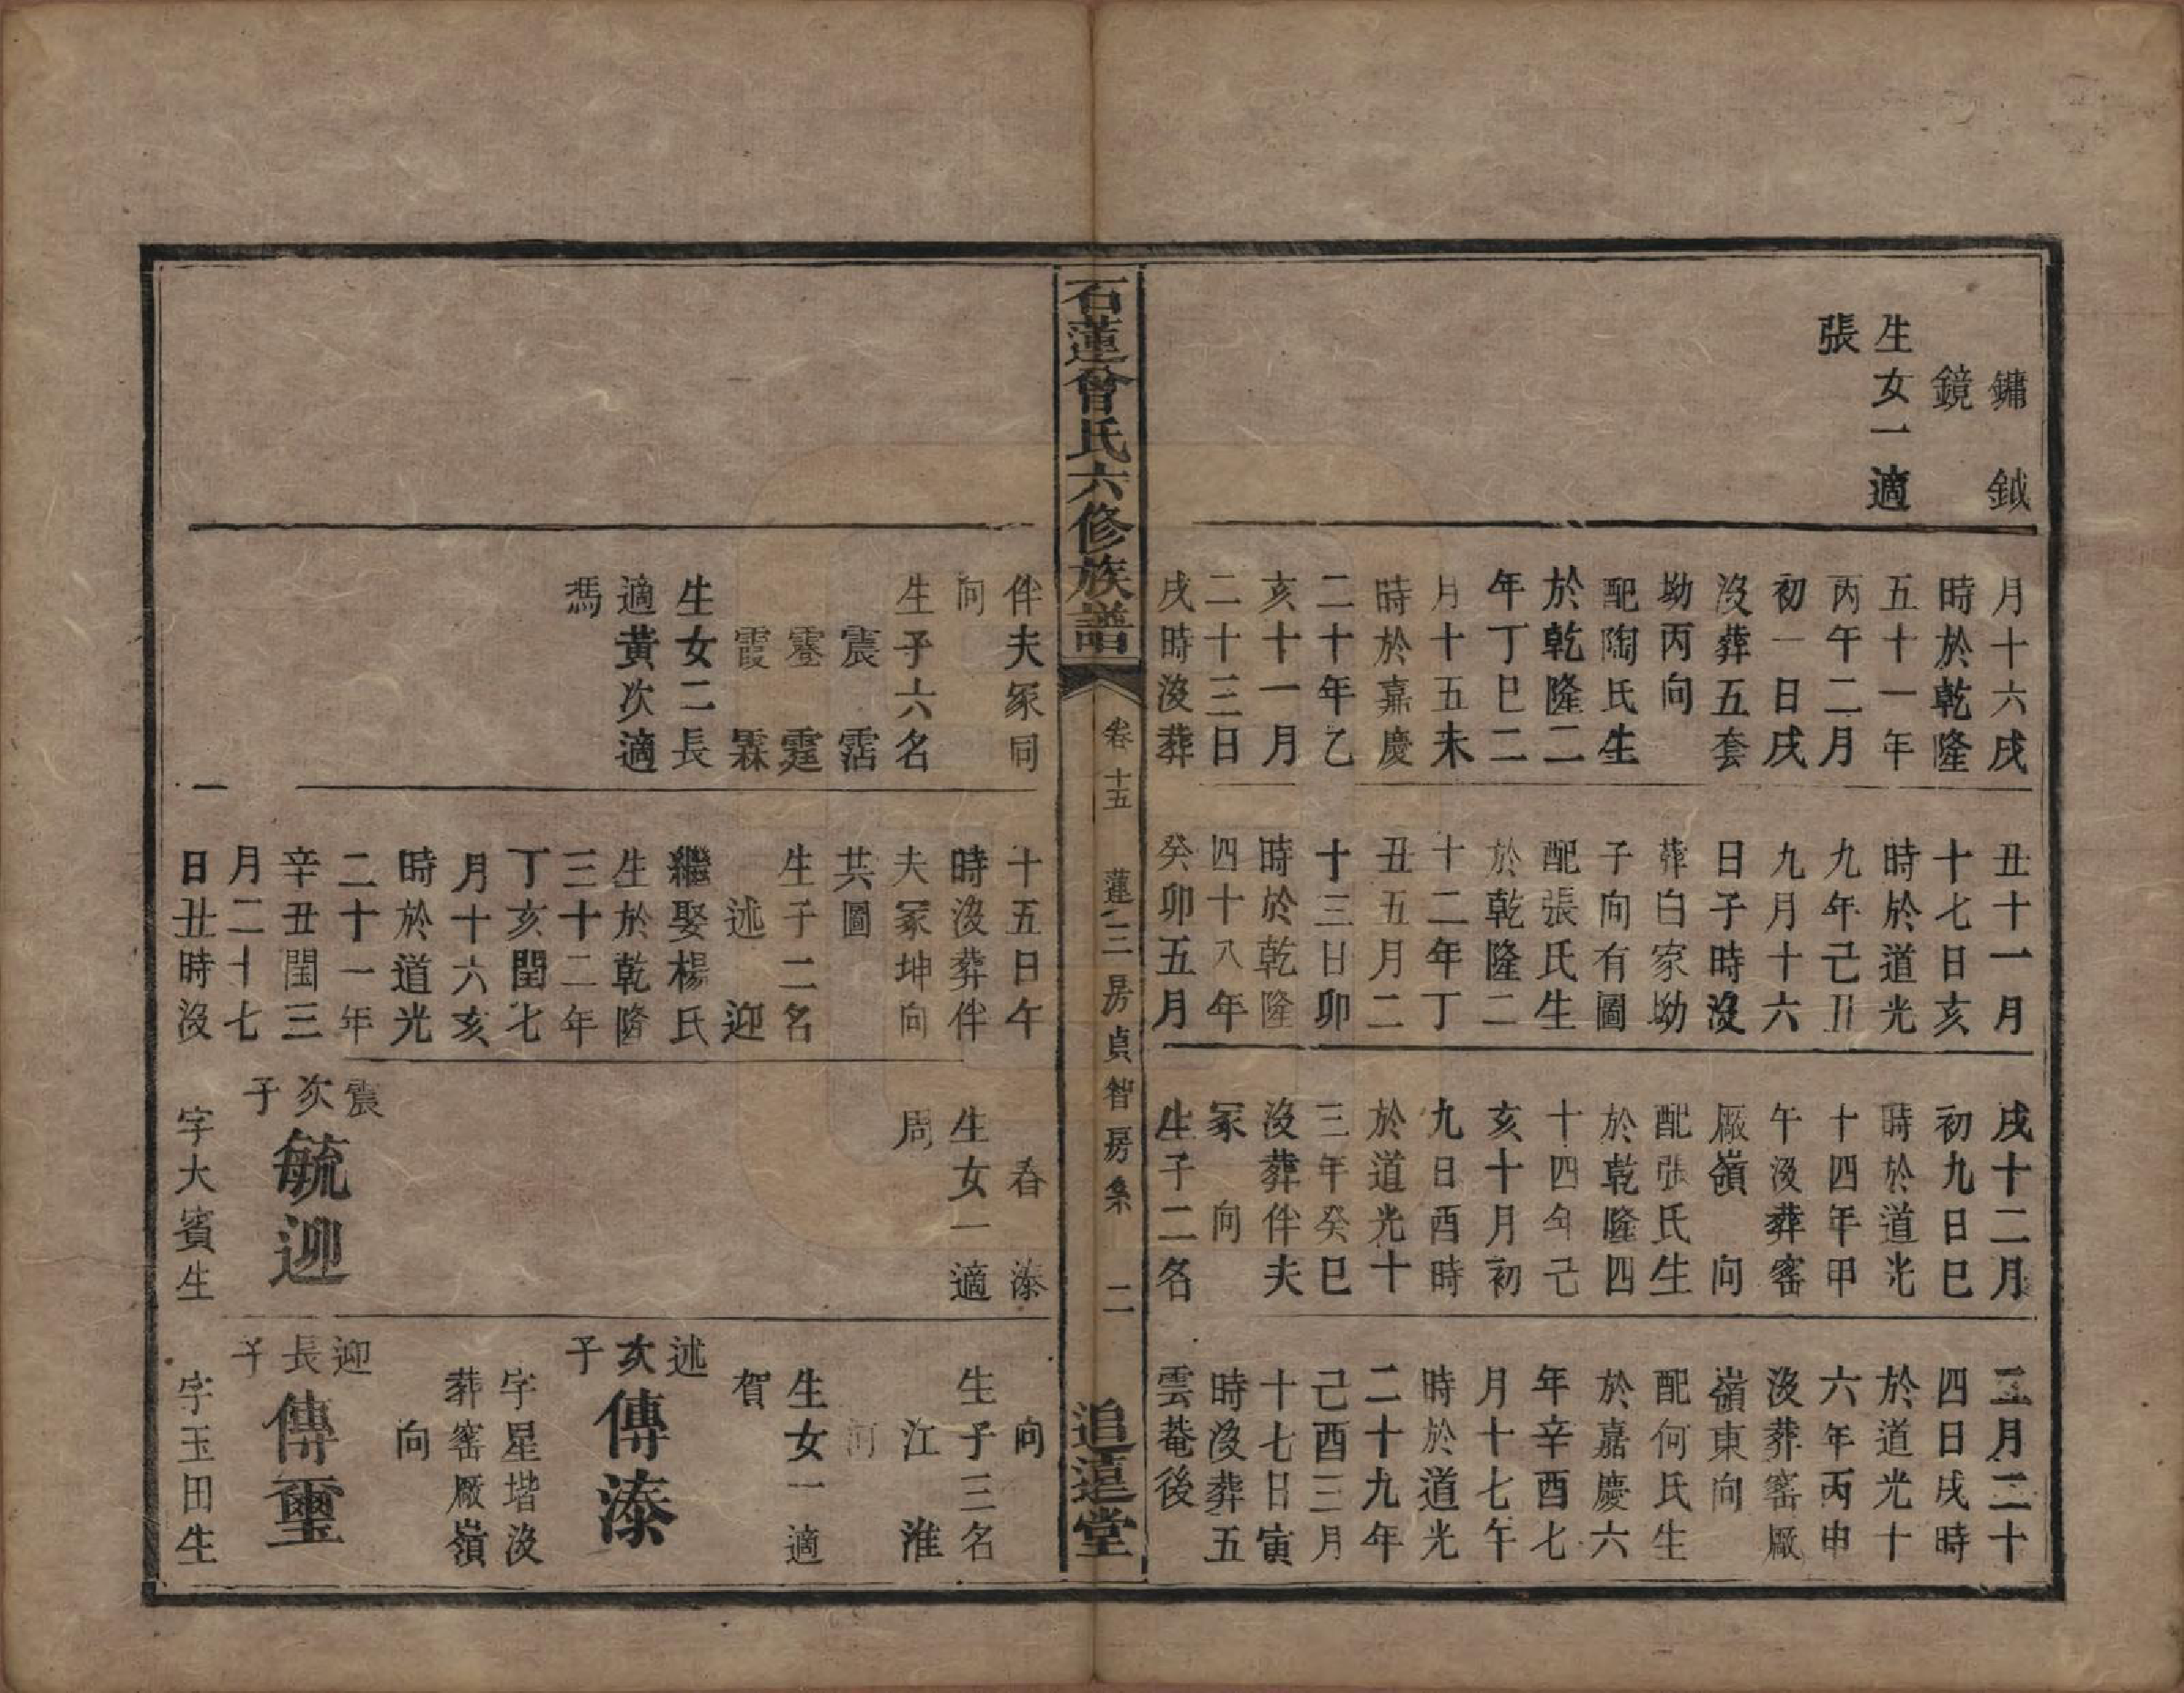 鏞 鉞
鏡
生女一適
張
月十六戌
時於乾隆
五十一年
丙午二月
初一日戌
沒葬五套
坳丙向
配陶氏生
於乾隆二
年丁巳二
月十五未
時於嘉慶
二十年乙
亥十一月
二十三日
戌時沒葬
丑十一月
十七日亥
時於道光
九年己丑
九月十六
日子時沒
葬白家坳
子向有圖
配張氏生
於乾隆二
十二年丁
丑五月二
十三日卯
時於乾隆
四十八年
癸卯五月
戌十二月
初九日巳
時於道光
十四年甲
午沒葬窰
厰嶺 向
配張氏生
於乾隆四
十四年己
亥十月初
九日酉時
於道光十
三年癸巳
沒葬伴夫
冢 向
生子二名
二月二十
四日戌時
於道光十
六年丙申
沒葬窰厰
嶺東向
配何氏生
於嘉慶六
年辛酉七
月十七午
時於道光
二十九年
己酉三月
十七日寅
時沒葬五
雲菴後
石蓮曾氏六修族譜
卷十五 蓮三房貞智房系 二
追遠堂
伴夫冢同
向
生子六名
震 霑
霆
霞 霖
生女二長
適黃次適
馮
十五日午
時沒葬伴
夫冢坤向
共圖
生子二名
述 迎
繼娶楊氏
生於乾隆
三十二年
丁亥閏七
月十六亥
時於道光
二十一年
辛丑閏三
月二十七
日丑時沒
春 溱
生女一適
周
震次子
毓迎
字大賓生
向
生子三名
江 淮
河
生女一適
賀
述次子
傳溱
字星堦沒
葬窰厰嶺
向
迎長子
傳璽
字玉田生